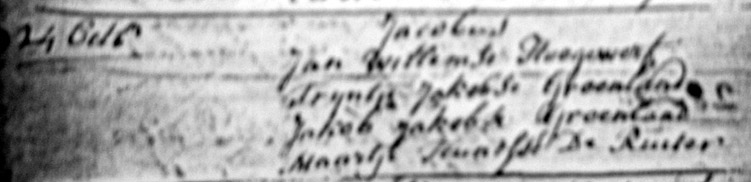 24 Octb Jacobus
Jan Willemse Hoogewerf
Tryntje Jakobse Groenland
Jakob Jakobse Groenland
Maartje De Ruiter